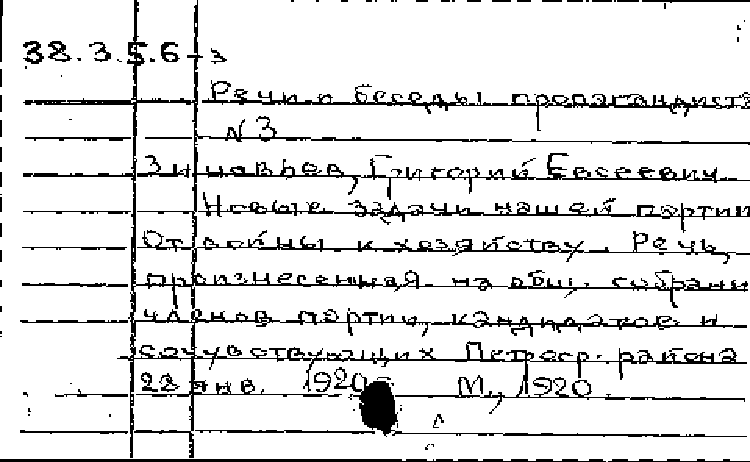 38.3.5.6-3
Речи и беседы пропагандиста
N 3
Зиновьев, Григорий Евсеевич
Новые задачи нашей партии
От войны к хозяйству. Речь,
произнесенная на общ. собрании
членов партии, кандидатов и
сочувствующих Петрогр. района
22 янв. 1920 М., 1920